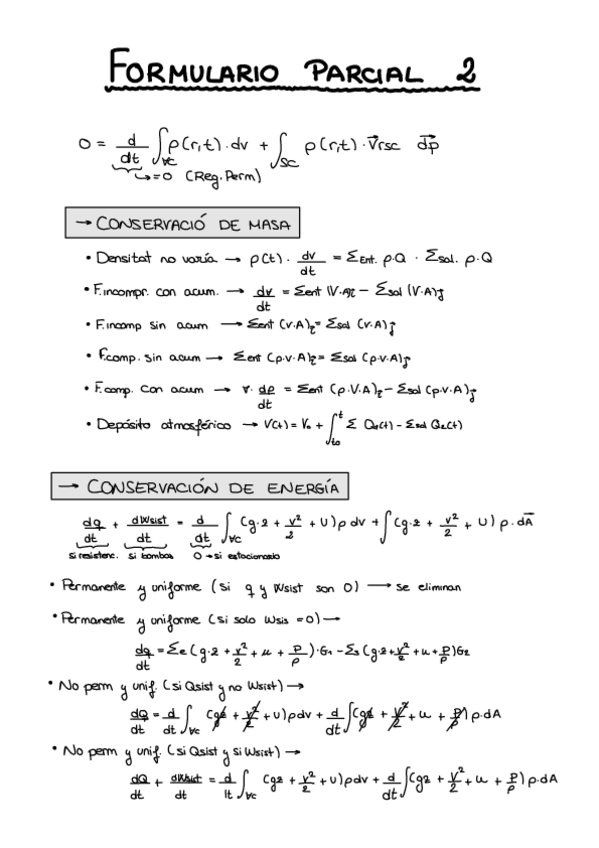 FORMULARIO PARCIAL 2
0 = d/dt ∫vc ρ(r,t)·dv + ∫sc ρ(r,t)·Vrsc dp
↳ =0 (Reg. Perm)
→ CONSERVACIÓ DE MASA
• Densitat no varía → ρ(t) · dv/dt = ΣEnt. ρ·Q · Σsal. ρ·Q
• F.incompr. con acum. → dv/dt = Σent (V·A)i − Σsal (V·A)j
• F.incomp sin acum → Σent (v·A)i = Σsal (v·A)j
• F.comp. sin acum → Σent (ρ·v·A)i = Σsal (ρ·v·A)j
• F.comp. con acum → V· dρ/dt = Σent (ρ·V·A)i − Σsal (ρ·v·A)j
• Depósito atmosférico → V(t) = V₀ + ∫to^t Σ Qe(t) − Σsal Qs(t)
→ CONSERVACIÓN DE ENERGÍA
dq/dt + dWsist/dt = d/dt ∫vc (g·z + v²/2 + U) ρ dv + ∫(g·z + v²/2 + U) ρ·dA
si resistenc. si bombas 0 → si estacionario
• Permanente y uniforme (si q y Wsist son 0) → se eliminan
• Permanente y uniforme (si solo Wsis = 0) →
dq/dt = Σe (g·z + v²/2 + u + p/ρ)·G1 − Σs (g·z + v²/2 + u + p/ρ) G2
• No perm y unif. (si Qsist y no Wsist) →
dQ/dt = d/dt ∫vc (gz + v²/2 + u) ρdv + d/dt ∫(gz + v²/2 + u + p/ρ) ρ·dA
• No perm y unif. (si Qsist y si Wsist) →
dQ/dt + dWsist/dt = d/lt ∫vc (gz + v²/2 + u) ρdv + d/dt ∫(gz + v²/2 + u + p/ρ) ρ·dA